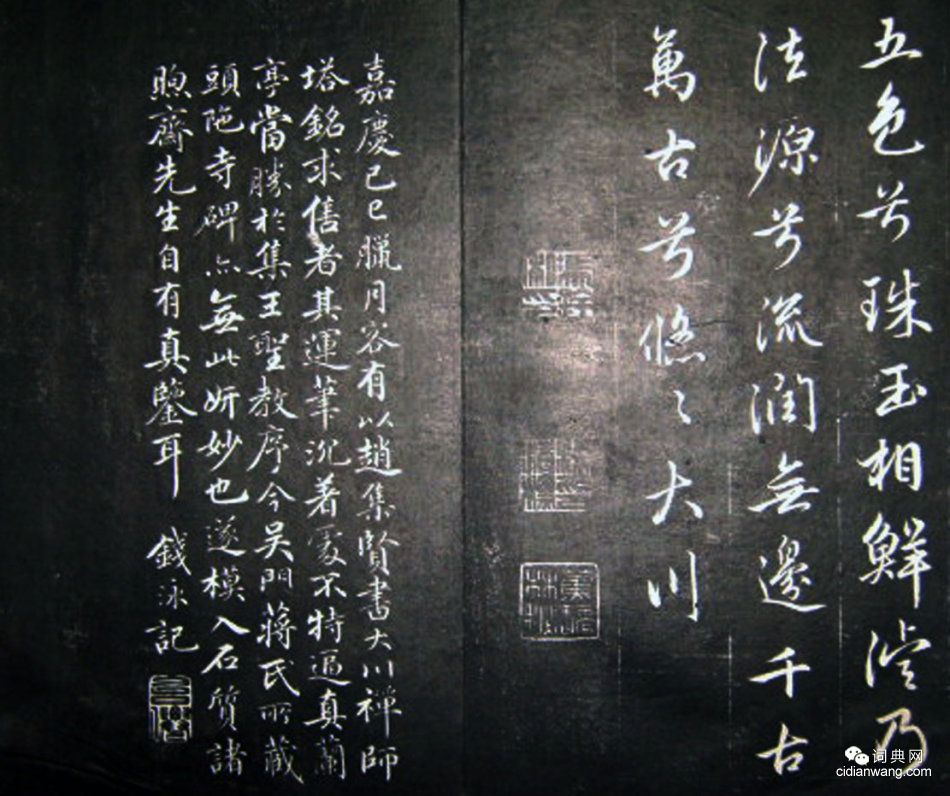 五色兮珠玉相鮮浚乃
法源兮流潤無邊千古
萬古兮悠〻大川
嘉慶己巳臘月客有以趙集賢書大川禅師
塔銘求售者其運筆沉着處不特逼真蘭
亭當勝於集王聖教序今吴門蒋氏所蔵
頭陁寺碑亦無此妍妙也遂模入石質諸
煦齋先生自有真鑒耳 錢泳記
词典网
cidianwang.com